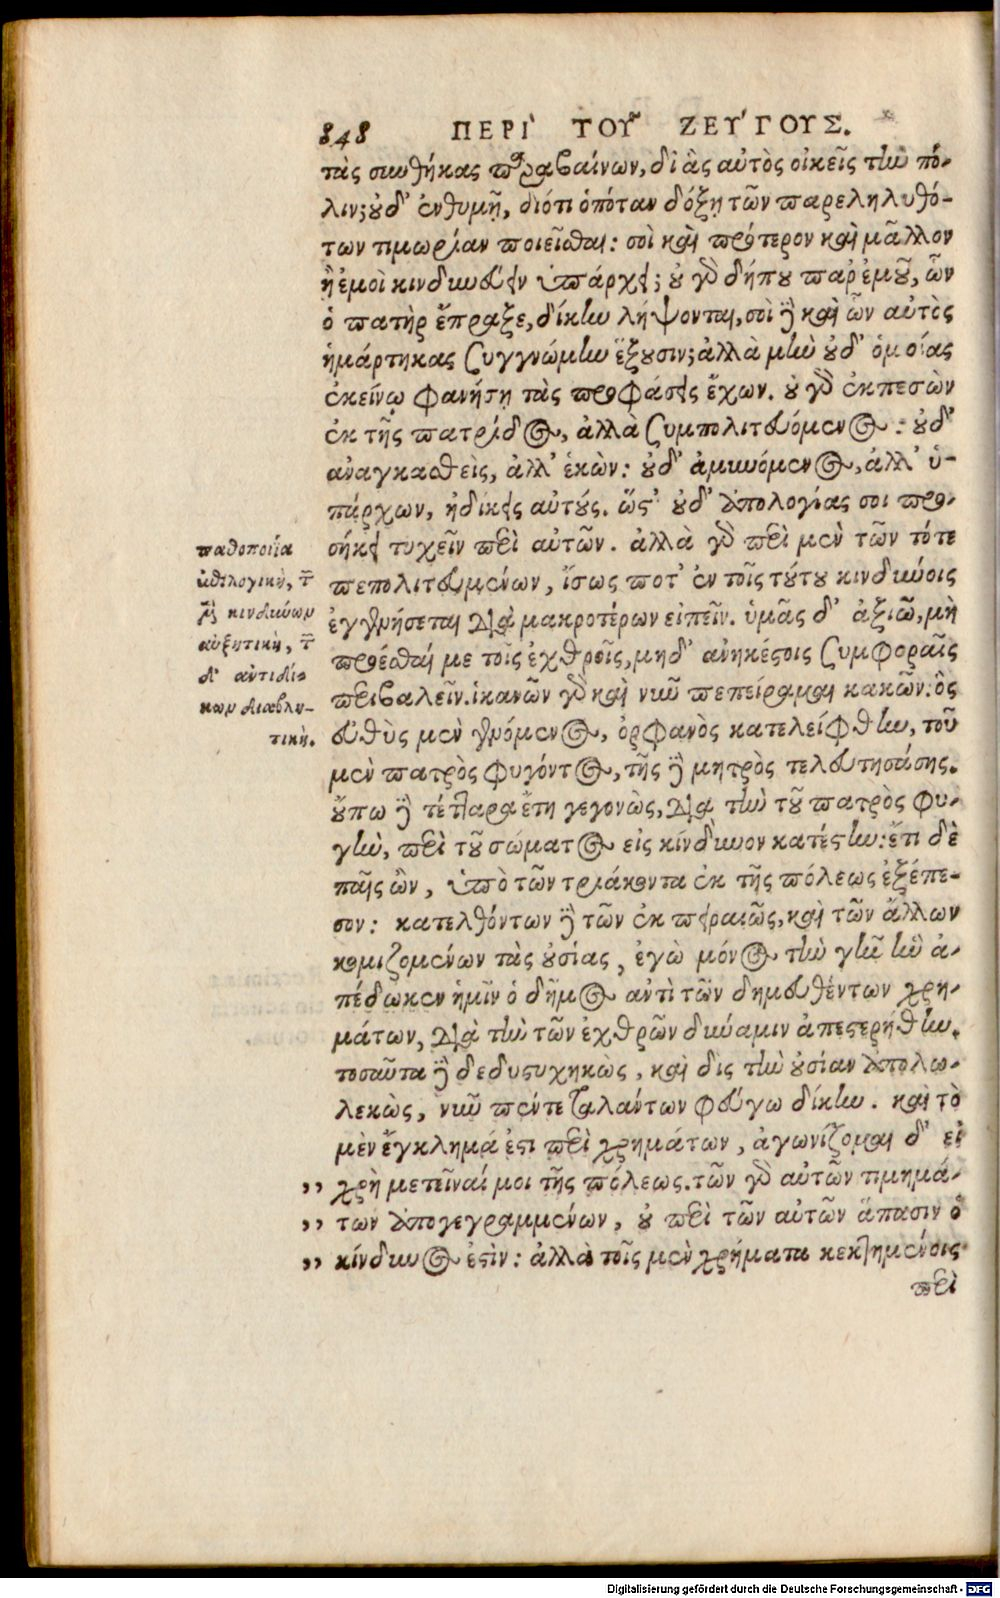 848 ΠΕΡΙ` ΤΟΥ͂ ΖΕΥ´ΓΟΥΣ.
τὰς συνθήκας παραβαίνων, δι ἃς αὐτὸς οἰκεῖς τὴν πό-
λιν; οὐδ' ἐνθυμῇ, διότι ὁπόταν δόξῃ τῶν παρεληλυθό-
των τιμωρίαν ποιεῖσθαι: σοὶ καὶ πρότερον καὶ μᾶλλον
ἢ ἐμοὶ κινδυνεύειν ὑπάρχει; οὐ γὰρ δήπου παρ' ἐμοῦ, ὧν
ὁ πατὴρ ἔπραξε, δίκην λήψονται, σοὶ δὲ καὶ ὧν αὐτὸς
ἡμάρτηκας συγγνώμην ἕξουσιν; ἀλλὰ μὴν οὐδ' ὁμοίας
ἐκείνῳ φανήσῃ τὰς προφάσεις ἔχων. οὐ γὰρ ἐκπεσὼν
ἐκ τῆς πατρίδος, ἀλλὰ συμπολιτευόμενος: οὐδ'
ἀναγκασθεὶς, ἀλλ' ἑκών: οὐδ' ἀμυνόμενος, ἀλλ' ὑ-
πάρχων, ἠδίκεις αὐτούς. ὥστ' οὐδ' ἀπολογίας σοι προ-
σήκει τυχεῖν περὶ αὐτῶν. ἀλλὰ γὰρ περὶ μὲν τῶν τότε
πεπολιτευμένων, ἴσως ποτ' ἐν τοῖς τούτου κινδύνοις
ἐγγενήσεται διὰ μακροτέρων εἰπεῖν. ὑμᾶς δ' ἀξιῶ, μὴ
προέσθαι με τοῖς ἐχθροῖς, μηδ' ἀνηκέστοις συμφοραῖς
περιβαλεῖν. ἱκανῶν γὰρ καὶ νῦν πεπείραμαι κακῶν: ὃς
εὐθὺς μὲν γενόμενος, ὀρφανὸς κατελείφθην, τοῦ
μὲν πατρὸς φυγόντος, τῆς δὲ μητρὸς τελευτησάσης.
οὔπω δὲ τέτταρα ἔτη γεγονὼς, διὰ τὴν τοῦ πατρὸς φυ-
γὴν, περὶ τοῦ σώματος εἰς κίνδυνον κατέστην: ἔτι δὲ
παῖς ὢν, ὑπὸ τῶν τριάκοντα ἐκ τῆς πόλεως ἐξέπε-
σον: κατελθόντων δὲ τῶν ἐκ πειραιῶς, καὶ τῶν ἄλλων
κομιζομένων τὰς οὐσίας, ἐγὼ μόνος τὴν γῆν ἣν ἀ-
πέδωκεν ἡμῖν ὁ δῆμος ἀντὶ τῶν δημευθέντων χρη-
μάτων, διὰ τὴν τῶν ἐχθρῶν δύναμιν ἀπεστερήθην.
τοσαῦτα δὲ δεδυστυχηκὼς, καὶ δὶς τὴν οὐσίαν ἀπολω-
λεκὼς, νῦν πέντε ταλάντων φεύγω δίκην. καὶ τὸ
μὲν ἔγκλημά ἐστι περὶ χρημάτων, ἀγωνίζομαι δ' εἰ
,, χρὴ μετεῖναί μοι τῆς πόλεως. τῶν γὰρ αὐτῶν τιμημά-
,, των ἀπογεγραμμένων, οὐ περὶ τῶν αὐτῶν ἅπασιν ὁ
,, κίνδυνος ἐστὶν: ἀλλὰ τοῖς μὲν χρήματα κεκτημένοις
περὶ
παθοποιΐα
κινδύνων
αὐξητικὴ,
δ' ἀντιδί-
κων διαβλη-
τική.
Digitalisierung gefördert durch die Deutsche Forschungsgemeinschaft - DFG